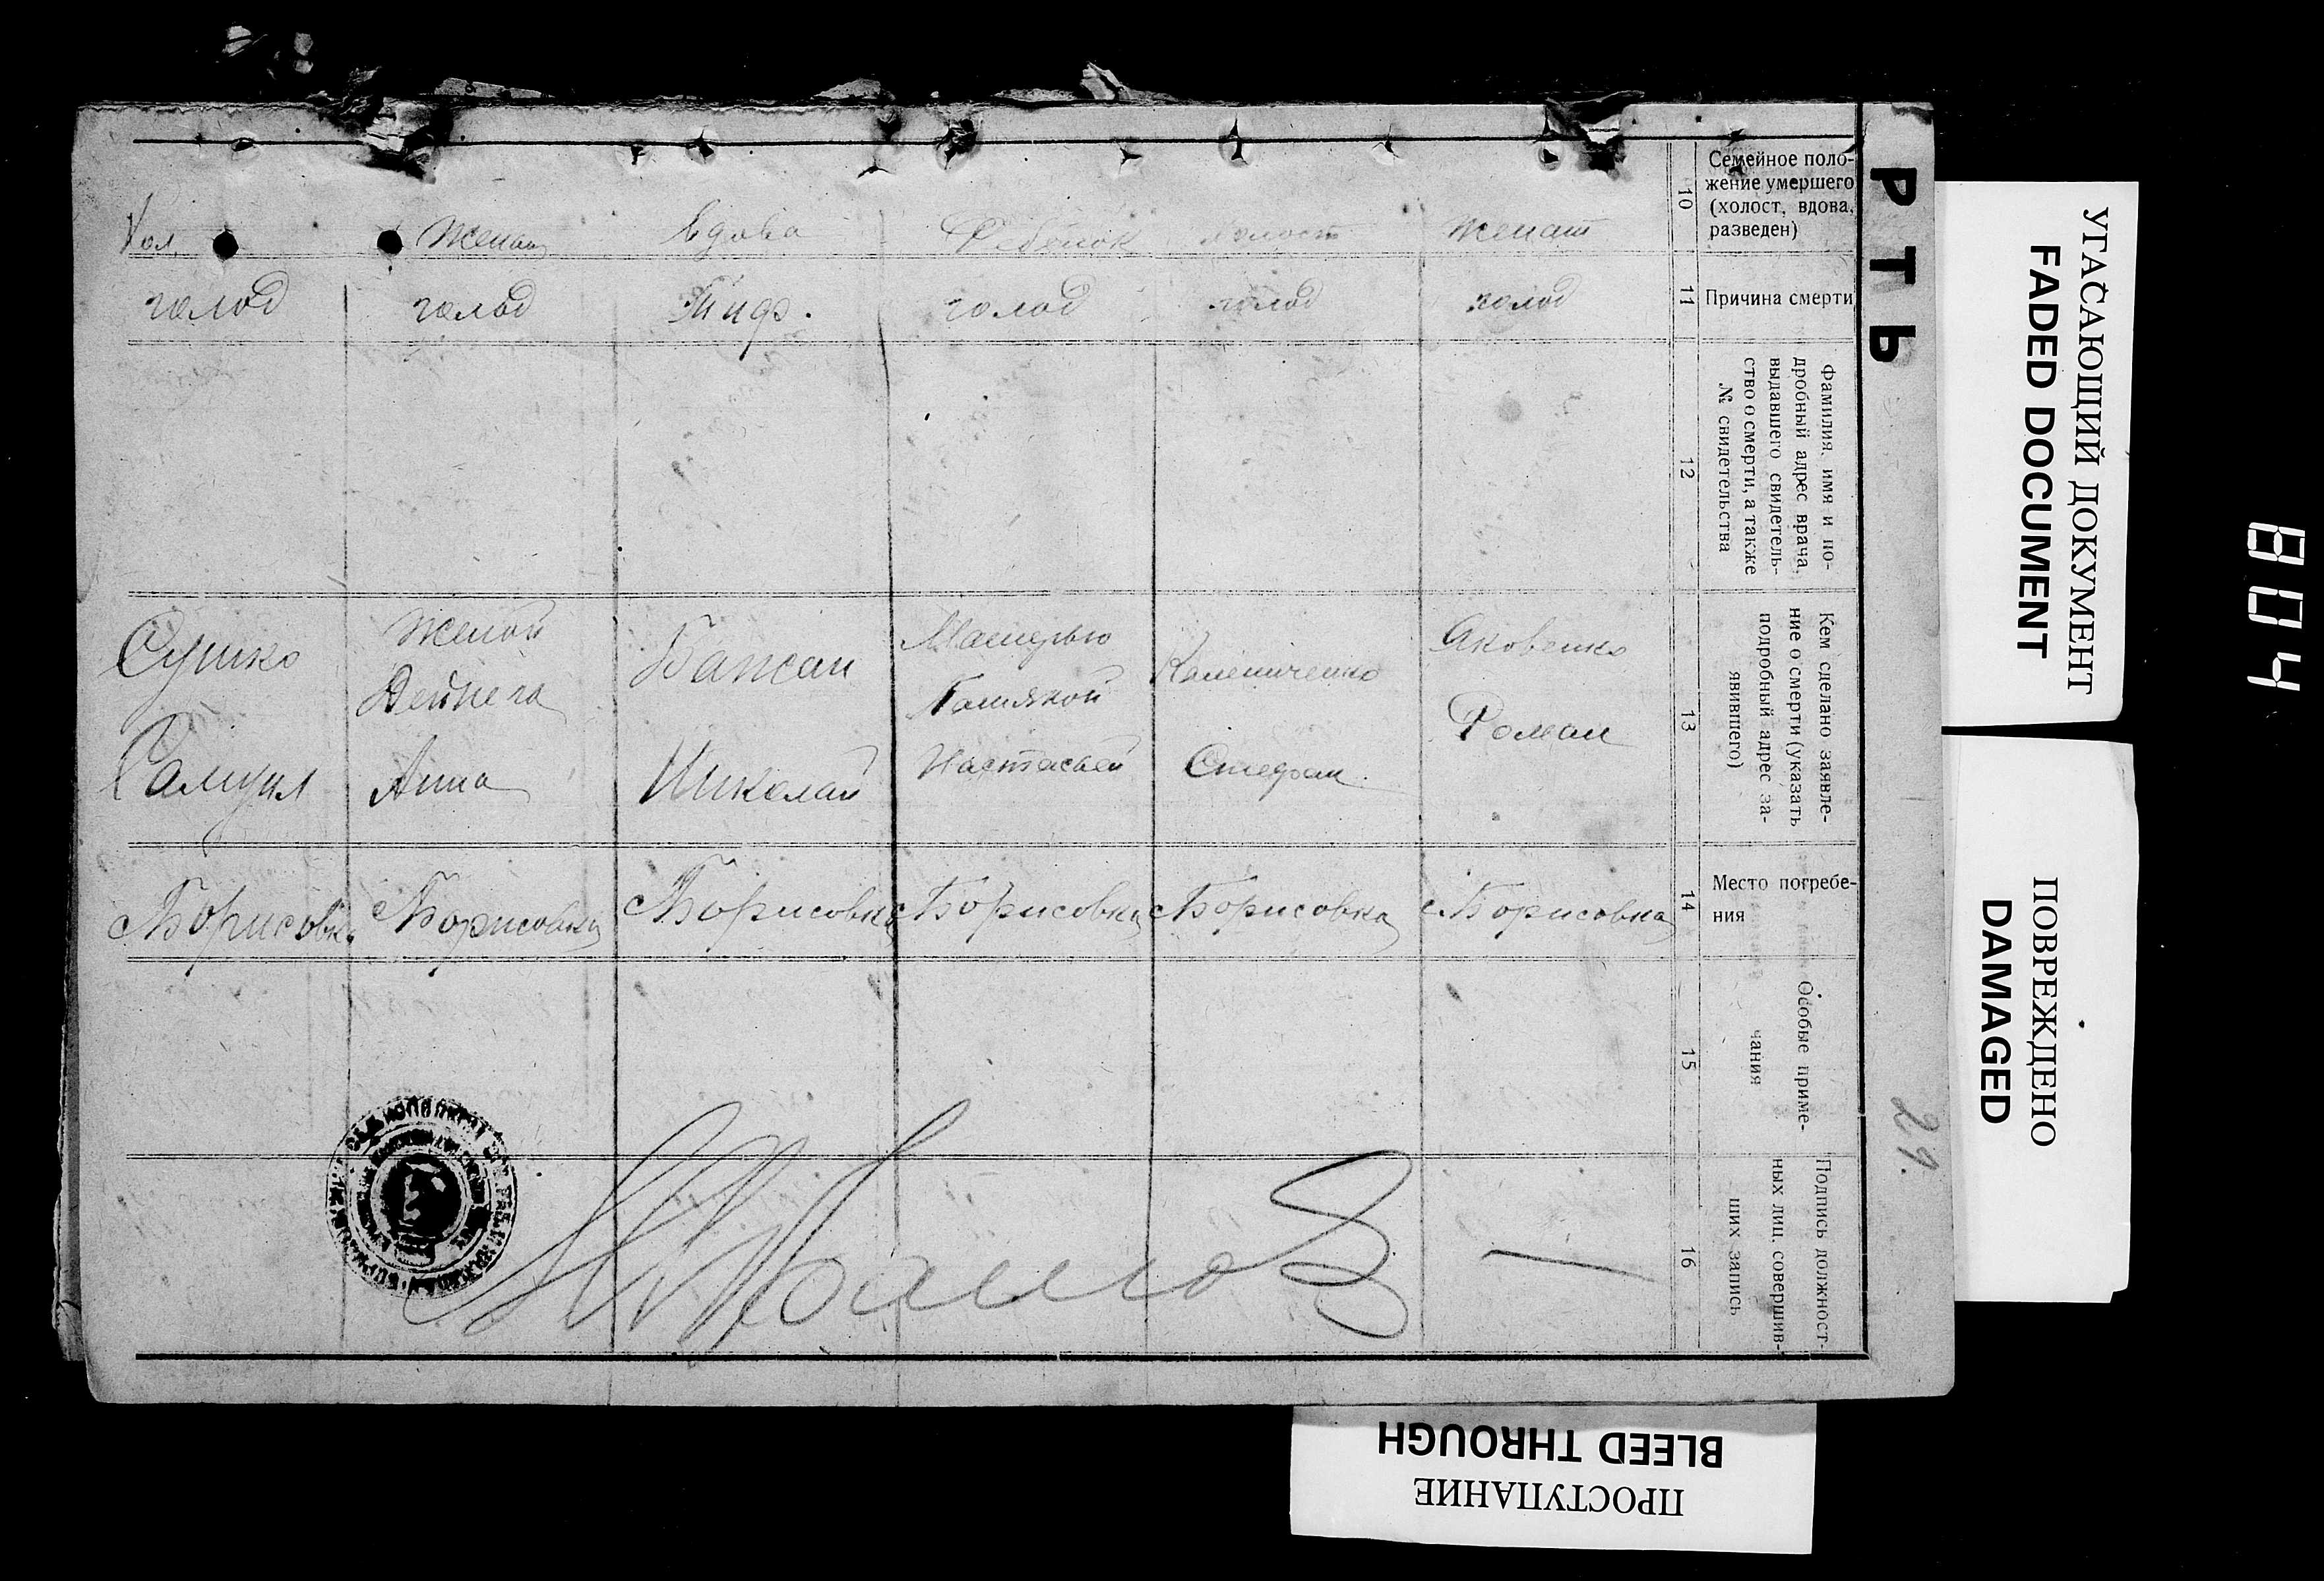 РТЬ
Семейное поло-
жение умершего
(холост, вдова,
разведен)
10
Женат
Холост
Ребёнок
Вдова
Женат
Хол.
Причина смерти
11
голод
голод
голод
Тиф.
голод
голод
Фамилия, имя и по-
дробный адрес врача,
выдавшего свидетель-
ство о смерти, а также
№ свидетельства
12
Кем сделано заявле-
ние о смерти (указать
подробный адрес за-
явившего)
13
Яковенко
Роман
Калениченко
Стефан
Матерью
Настасьей
Бажан
Николай
Женой
Дейнега
Анна
Сушко
Самуил
Место погребе-
ния
14
с. Борисовка
с Борисовка
с Борисовка
с Борисовка
с Борисовка
с Борисовка
Особые приме-
чания
15
Подпись должност-
ных лиц, совершив-
ших запись
16
29.
УГАСАЮЩИЙ ДОКУМЕНТ
FADED DOCUMENT
ПОВРЕЖДЕНО
DAMAGED
ПРОСТУПАНИЕ
BLEED THROUGH
804